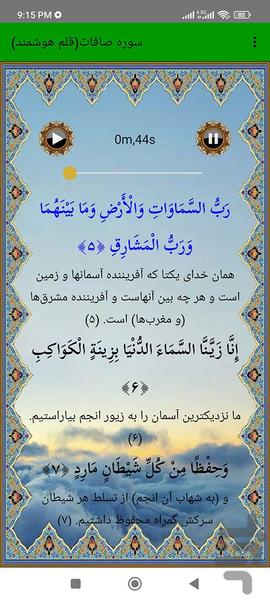 9:15 PM
سوره صافات(قلم هوشمند)
0m,44s
رَبُّ السَّمَاوَاتِ وَالْأَرْضِ وَمَا بَيْنَهُمَا
وَرَبُّ الْمَشَارِقِ ﴿۵﴾
همان خدای یکتا که آفریننده آسمانها و زمین
است و هر چه بین آنهاست و آفریننده مشرق‌ها
(و مغرب‌ها) است. (۵)
إِنَّا زَيَّنَّا السَّمَاءَ الدُّنْيَا بِزِينَةٍ الْكَوَاكِبِ
﴿۶﴾
ما نزدیکترین آسمان را به زیور انجم بیاراستیم.
(۶)
وَحِفْظًا مِنْ كُلِّ شَيْطَانٍ مَارِدٍ ﴿۷﴾
و (به شهاب آن انجم) از تسلط هر شیطان
سرکش گمراه محفوظ داشتیم. (۷)